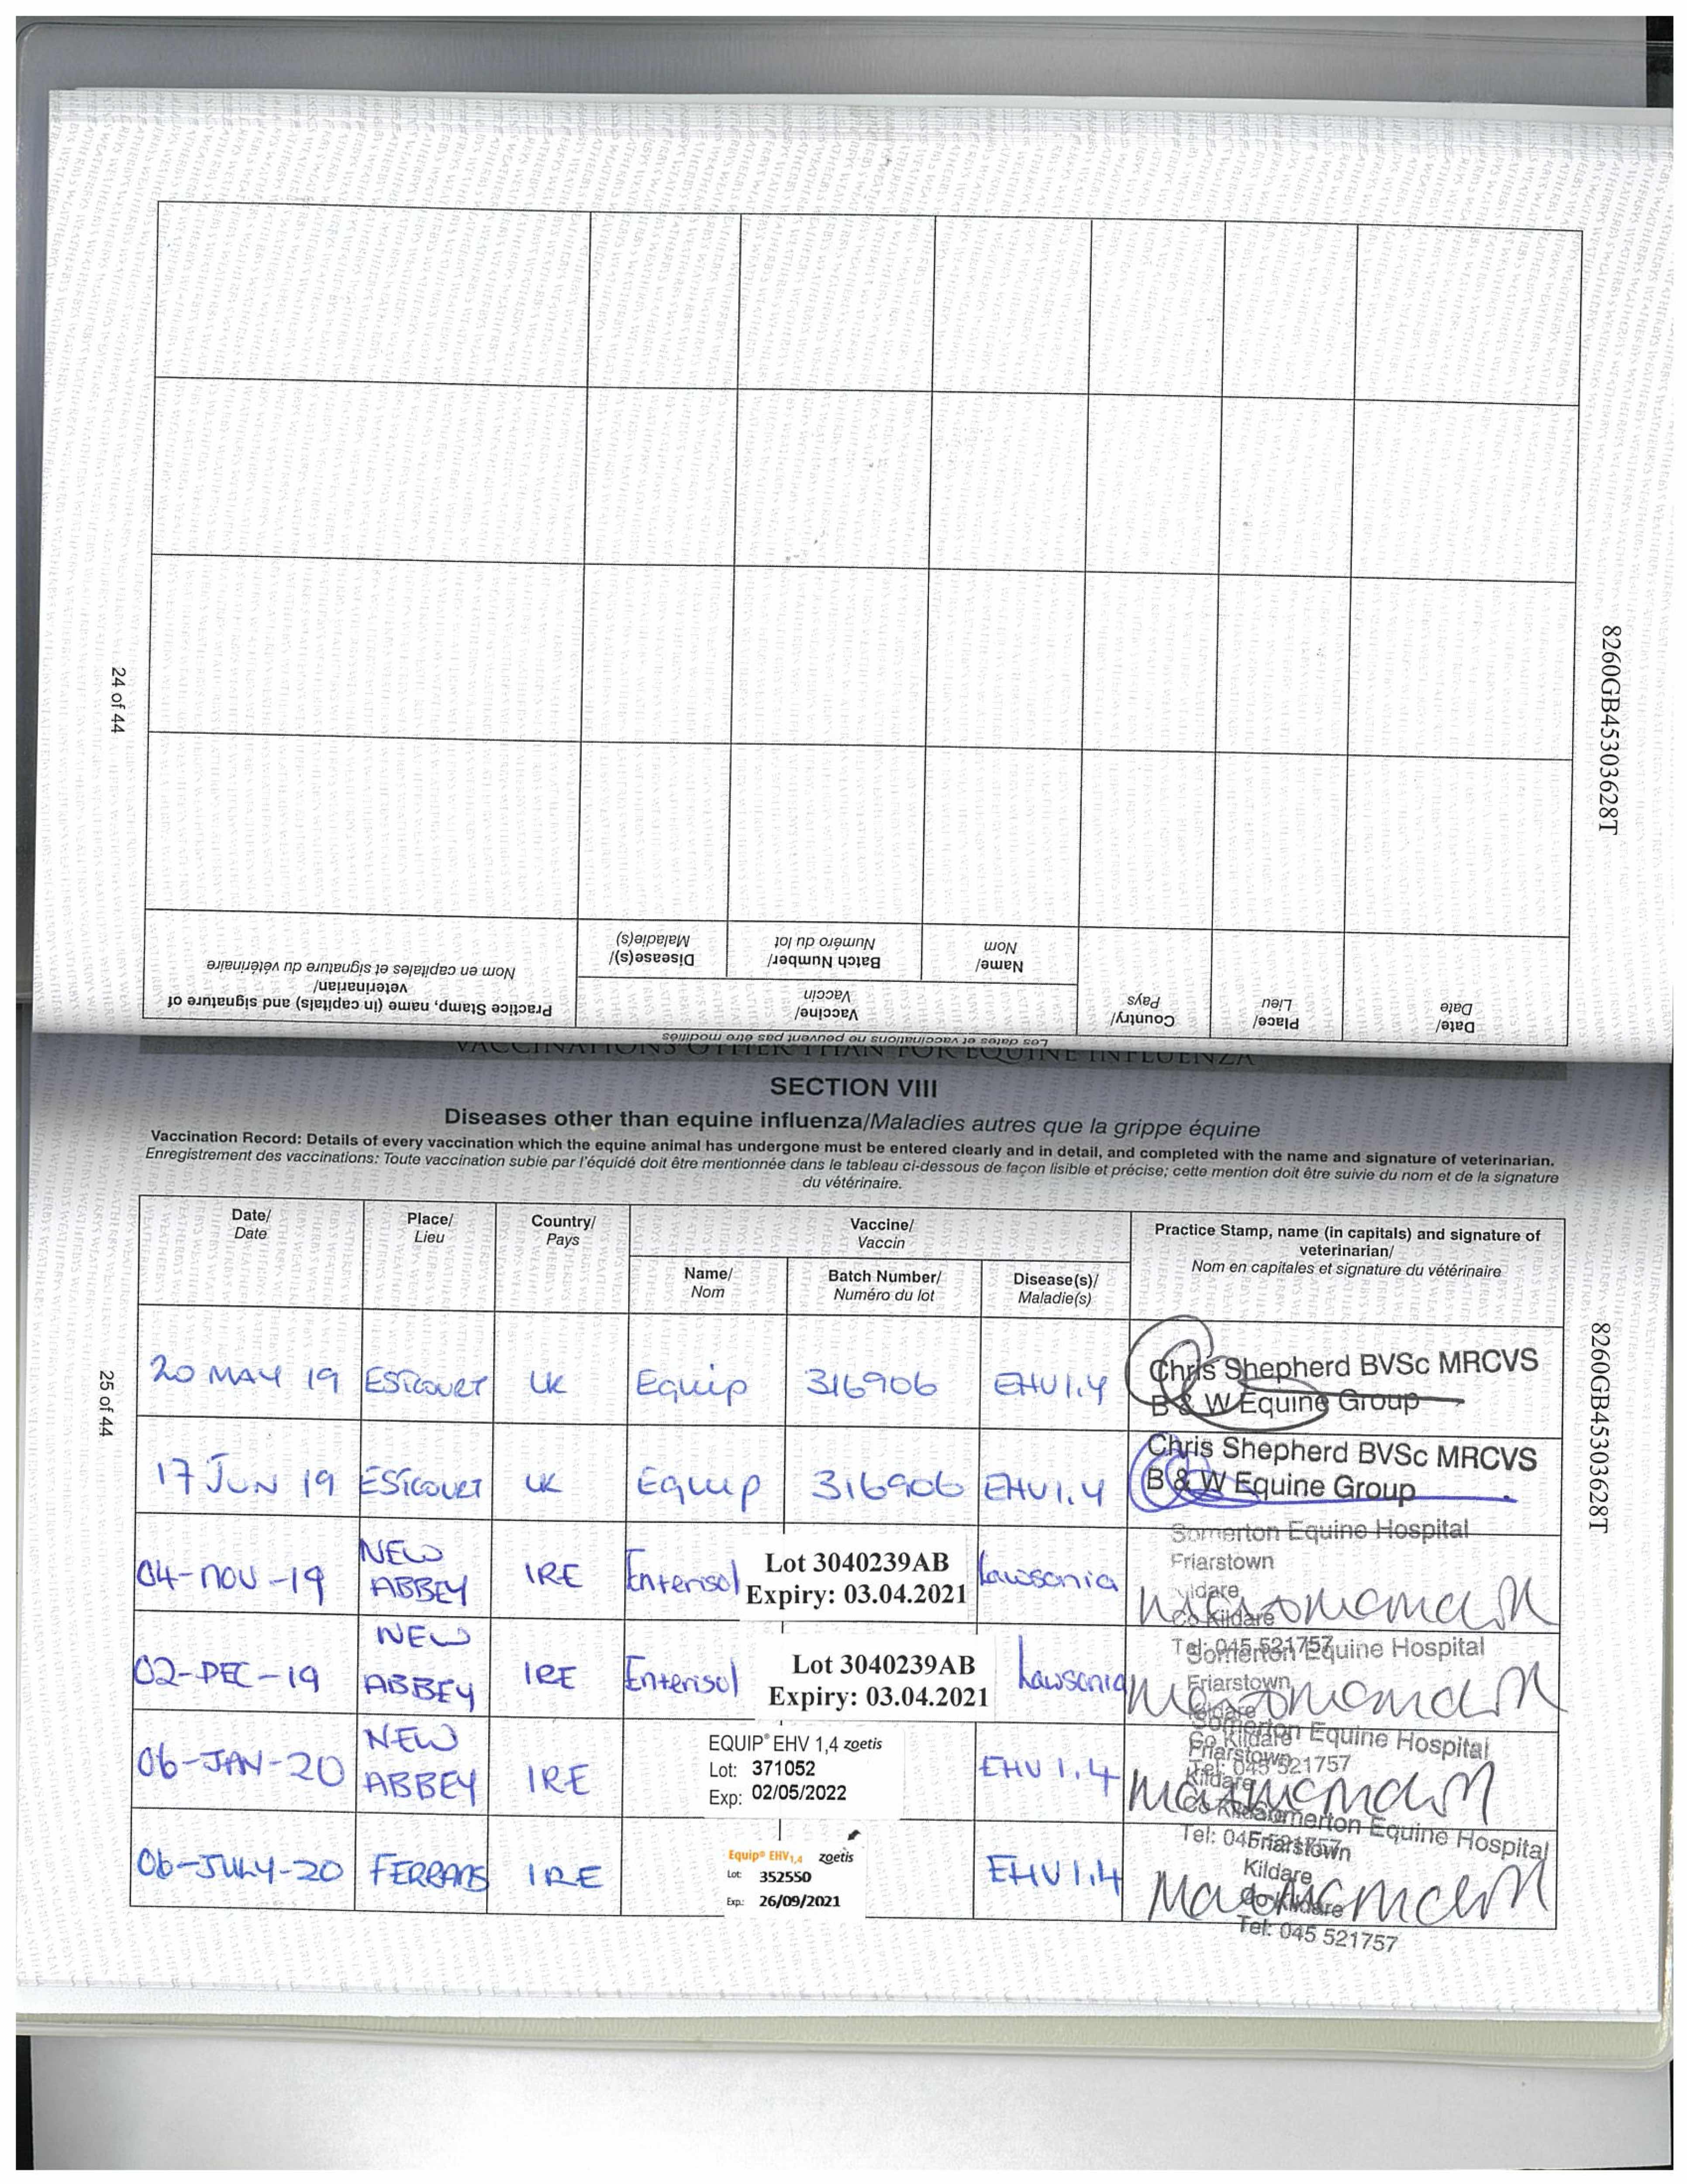 8260GB45303628T
24 of 44
Les dates et vaccinations ne peuvent pas être modifiés
Date/
Date
Place/
Lieu
Country/
Pays
Vaccine/
Vaccin
Name/
Nom
Batch Number/
Numéro du lot
Disease(s)/
Maladie(s)
Practice Stamp, name (in capitals) and signature of
veterinarian/
Nom en capitales et signature du vétérinaire
VACCINATIONS OTHER THAN FOR EQUINE INFLUENZA
SECTION VIII
Diseases other than equine influenza/Maladies autres que la grippe équine
Vaccination Record: Details of every vaccination which the equine animal has undergone must be entered clearly and in detail, and completed with the name and signature of veterinarian.
Enregistrement des vaccinations: Toute vaccination subie par l'équidé doit être mentionnée dans le tableau ci-dessous de façon lisible et précise; cette mention doit être suivie du nom et de la signature
du vétérinaire.
Date/
Date
Place/
Lieu
Country/
Pays
Vaccine/
Vaccin
Name/
Nom
Batch Number/
Numéro du lot
Disease(s)/
Maladie(s)
Practice Stamp, name (in capitals) and signature of
veterinarian/
Nom en capitales et signature du vétérinaire
20 MAY 19 ESTCOURT UK Equip 316906 EHV1,4
Chris Shepherd BVSc MRCVS
B & W Equine Group
17 JUN 19 ESTCOURT UK Equip 316906 EHV1,4
Chris Shepherd BVSc MRCVS
B & W Equine Group
04-NOV-19 NEW ABBEY IRE Enterisol
Lot 3040239AB
Expiry: 03.04.2021
Lawsonia
Somerton Equine Hospital
Friarstown
Kildare
Co Kildare
Tel: 045 521757
02-DEC-19 NEW ABBEY IRE Enterisol
Lot 3040239AB
Expiry: 03.04.2021
Lawsonia
Somerton Equine Hospital
Friarstown
Kildare
Co Kildare
Tel: 045 521757
06-JAN-20 NEW ABBEY IRE
EQUIP® EHV 1,4 zoetis
Lot: 371052
Exp: 02/05/2022
EHV 1,4
Somerton Equine Hospital
Friarstown
Kildare
Co Kildare
Tel: 045 521757
06-JULY-20 FERRANS IRE
Equip® EHV1,4 zoetis
Lot: 352550
Exp.: 26/09/2021
EHV 1,4
Somerton Equine Hospital
Friarstown
Kildare
Co Kildare
Tel: 045 521757
25 of 44
8260GB45303628T